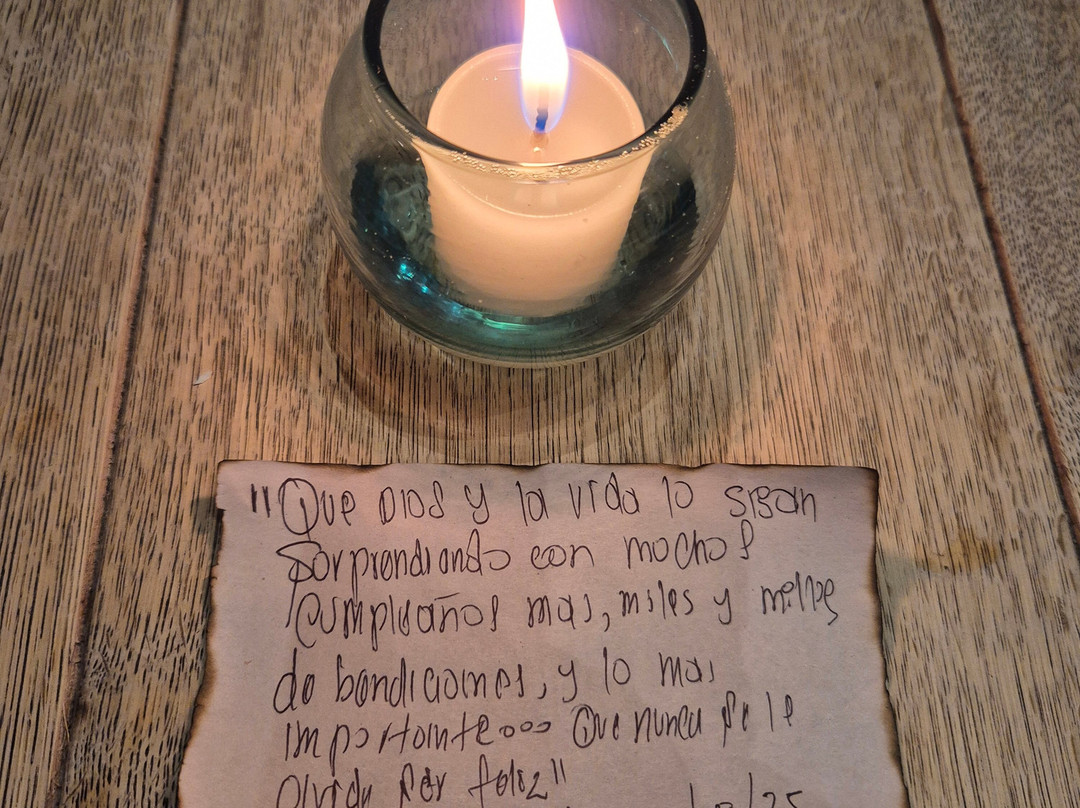 "Que Dios y la vida lo sigan
sorprendiendo con muchos
cumpleaños mas, miles y miles
de bendiciones, y lo mas
importante... Que nunca se le
olvide ser feliz"
/25